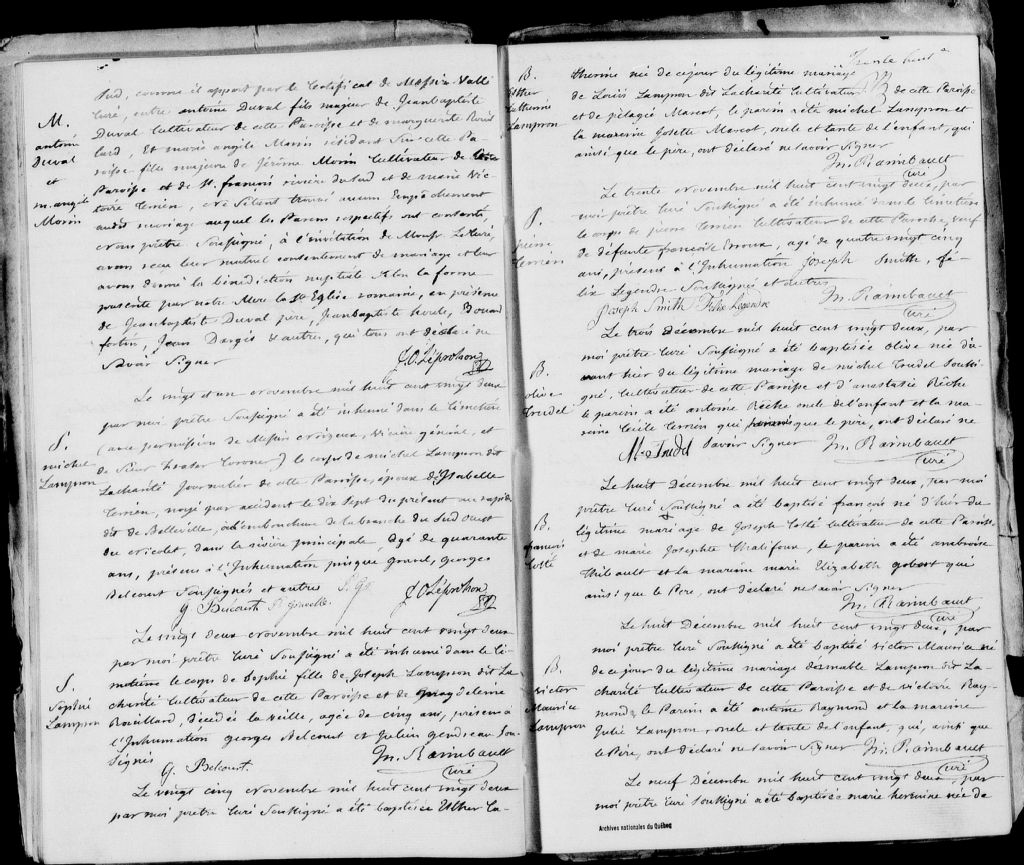 Sud, comme il appert par le Certificat de Messire Vallé
M.
antoine
Duval
et
m. angèle
Morin
Curé, entre antoine Duval fils majeur de Jeanbaptiste
Duval Cultivateur de cette Paroisse et de marguerite Rouil
lard, Et marie angèle Morin résidant Sur cette Pa
roisse fille majeure de Jérôme Morin Cultivateur de
Paroisse et de St. françois rivière du Sud et de marie Vic
toire Terrien, ne S'étant trouvé aucun Empêchement
audit mariage auquel les Parens respectif ont consenti,
nous prêtre Soussigné, à l'invitation de Monsr. Le Curé,
avons reçu leur mutuel consentement de mariage et leur
avons donné la bénédiction nuptiale Selon la forme
prescrite par notre Mere la Ste Eglise romaine, en présence
de Jeanbaptiste Duval père, Jeanbaptiste
fortin, Jean & autres, qui tous ont déclaré ne
Savoir Signer J. O. Léprohon Ptre
Le vingt et un novembre mil huit cent vingt deux
S.
michel
Lampron
par moi prêtre Soussigné a été inhumé dans le Cimetière
(avec permission de Messire Vicaire général, et
de Sieur Coroner) le corps de michel Lampron dit
Lacharité Journalier de cette Paroisse, époux d'Isabelle
Terrien, noyé par accident le dix Sept du présent au rapide
dit de Belleville, à l'embouchure de la branche du Sud Ouest
du nicolet, dans la rivière principale, âgé de quarante
ans, présens à l'Inhumation Georges
Belcourt Soussignés et autres
G. Belcourt J. O. Léprohon Ptre
Le vingt deux novembre mil huit cent vingt deux
S.
Sophie
Lampron
par moi prêtre Curé Soussigné a été inhumé dans le Ci
metière le corps de Sophie fille de Joseph Lampron dit La
charité Cultivateur de cette Paroisse et de magdeleine
Rouillard, Décédée la veille, agée de cinq ans, présens à
l'Inhumation georges Belcourt et Julien gendreau Sous
Signés Jn. Raimbault
G. Belcourt. Curé
Le vingt cinq novembre mil huit cent vingt deux
par moi prêtre Curé Soussigné a été baptisée Esther Ca-
Trente huit
B.
Esther
Catherine
Lampron
therine née de cejour du légitime mariage
de Loüis Lampron dit Lacharité Cultivateur de cette Paroisse
et de pélagie Marcot, le parein a été michel Lampron et
la mareine Josette Marcot, oncle et tante de l'enfant, qui
ainsi que le père, ont déclaré ne savoir Signer
Jn. Raimbault
Curé
Le trente novembre mil huit cent vingt deux, par
S.
pierre
Terrien
moi prêtre Curé Soussigné a été inhumé dans le Cimetière
le corps de pierre Terrien Cultivateur de cette Paroisse, veuf
de défunte françoise, agé de quatre vingt cinq
ans, présens à l'Inhumation Joseph Smith, fé-
lix Legendre Soussignés et autres
Joseph Smith Félix Legendre Jn. Raimbault
Curé
Le trois Décembre mil huit cent vingt deux, par
B.
olive
Trudel
moi prêtre Curé Soussigné a été baptisée Olive née du
avant hier du légitime mariage de michel Trudel Soussi-
gné, Cultivateur de cette Paroisse et d'anastasie Rêche
le parein a été antoine Rêche oncle de l'enfant et la ma-
reine Cecile Terrien qui que le père, ont déclaré ne
M. Trudel savoir Signer Jn. Raimbault
Curé
Le huit Décembre mil huit cent vingt deux, par moi
B.
françois
Coté
prêtre Curé Soussigné a été baptisé françois né d'hier du
légitime mariage de Joseph Cotté Cultivateur de cette Paroisse
et de marie Josephte, le parein a été ambroise
Thibault et la mareine marie Elizabeth qui
ainsi que le Père, ont déclaré ne savoir Signer
Jn. Raimbault
Curé
Le huit Décembre mil huit cent vingt deux, par
B.
Victor
Maurice
Lampron
moi prêtre Curé Soussigné a été baptisé victor Maurice né
de ce jour du légitime mariage Lampron dit La-
charité Cultivateur de cette Paroisse et de victoire Ray
mond, le Parein a été antoine Raymond et la mareine
Julie Lampron, oncle et tante de l'enfant, qui, ainsi que
le Père, ont déclaré ne savoir Signer Jn. Raimbault
Curé
Le neuf Décembre mil huit cent vingt deux, par
moi prêtre Curé Soussigné a été baptisée marie hermine née de
Archives nationales du Québec